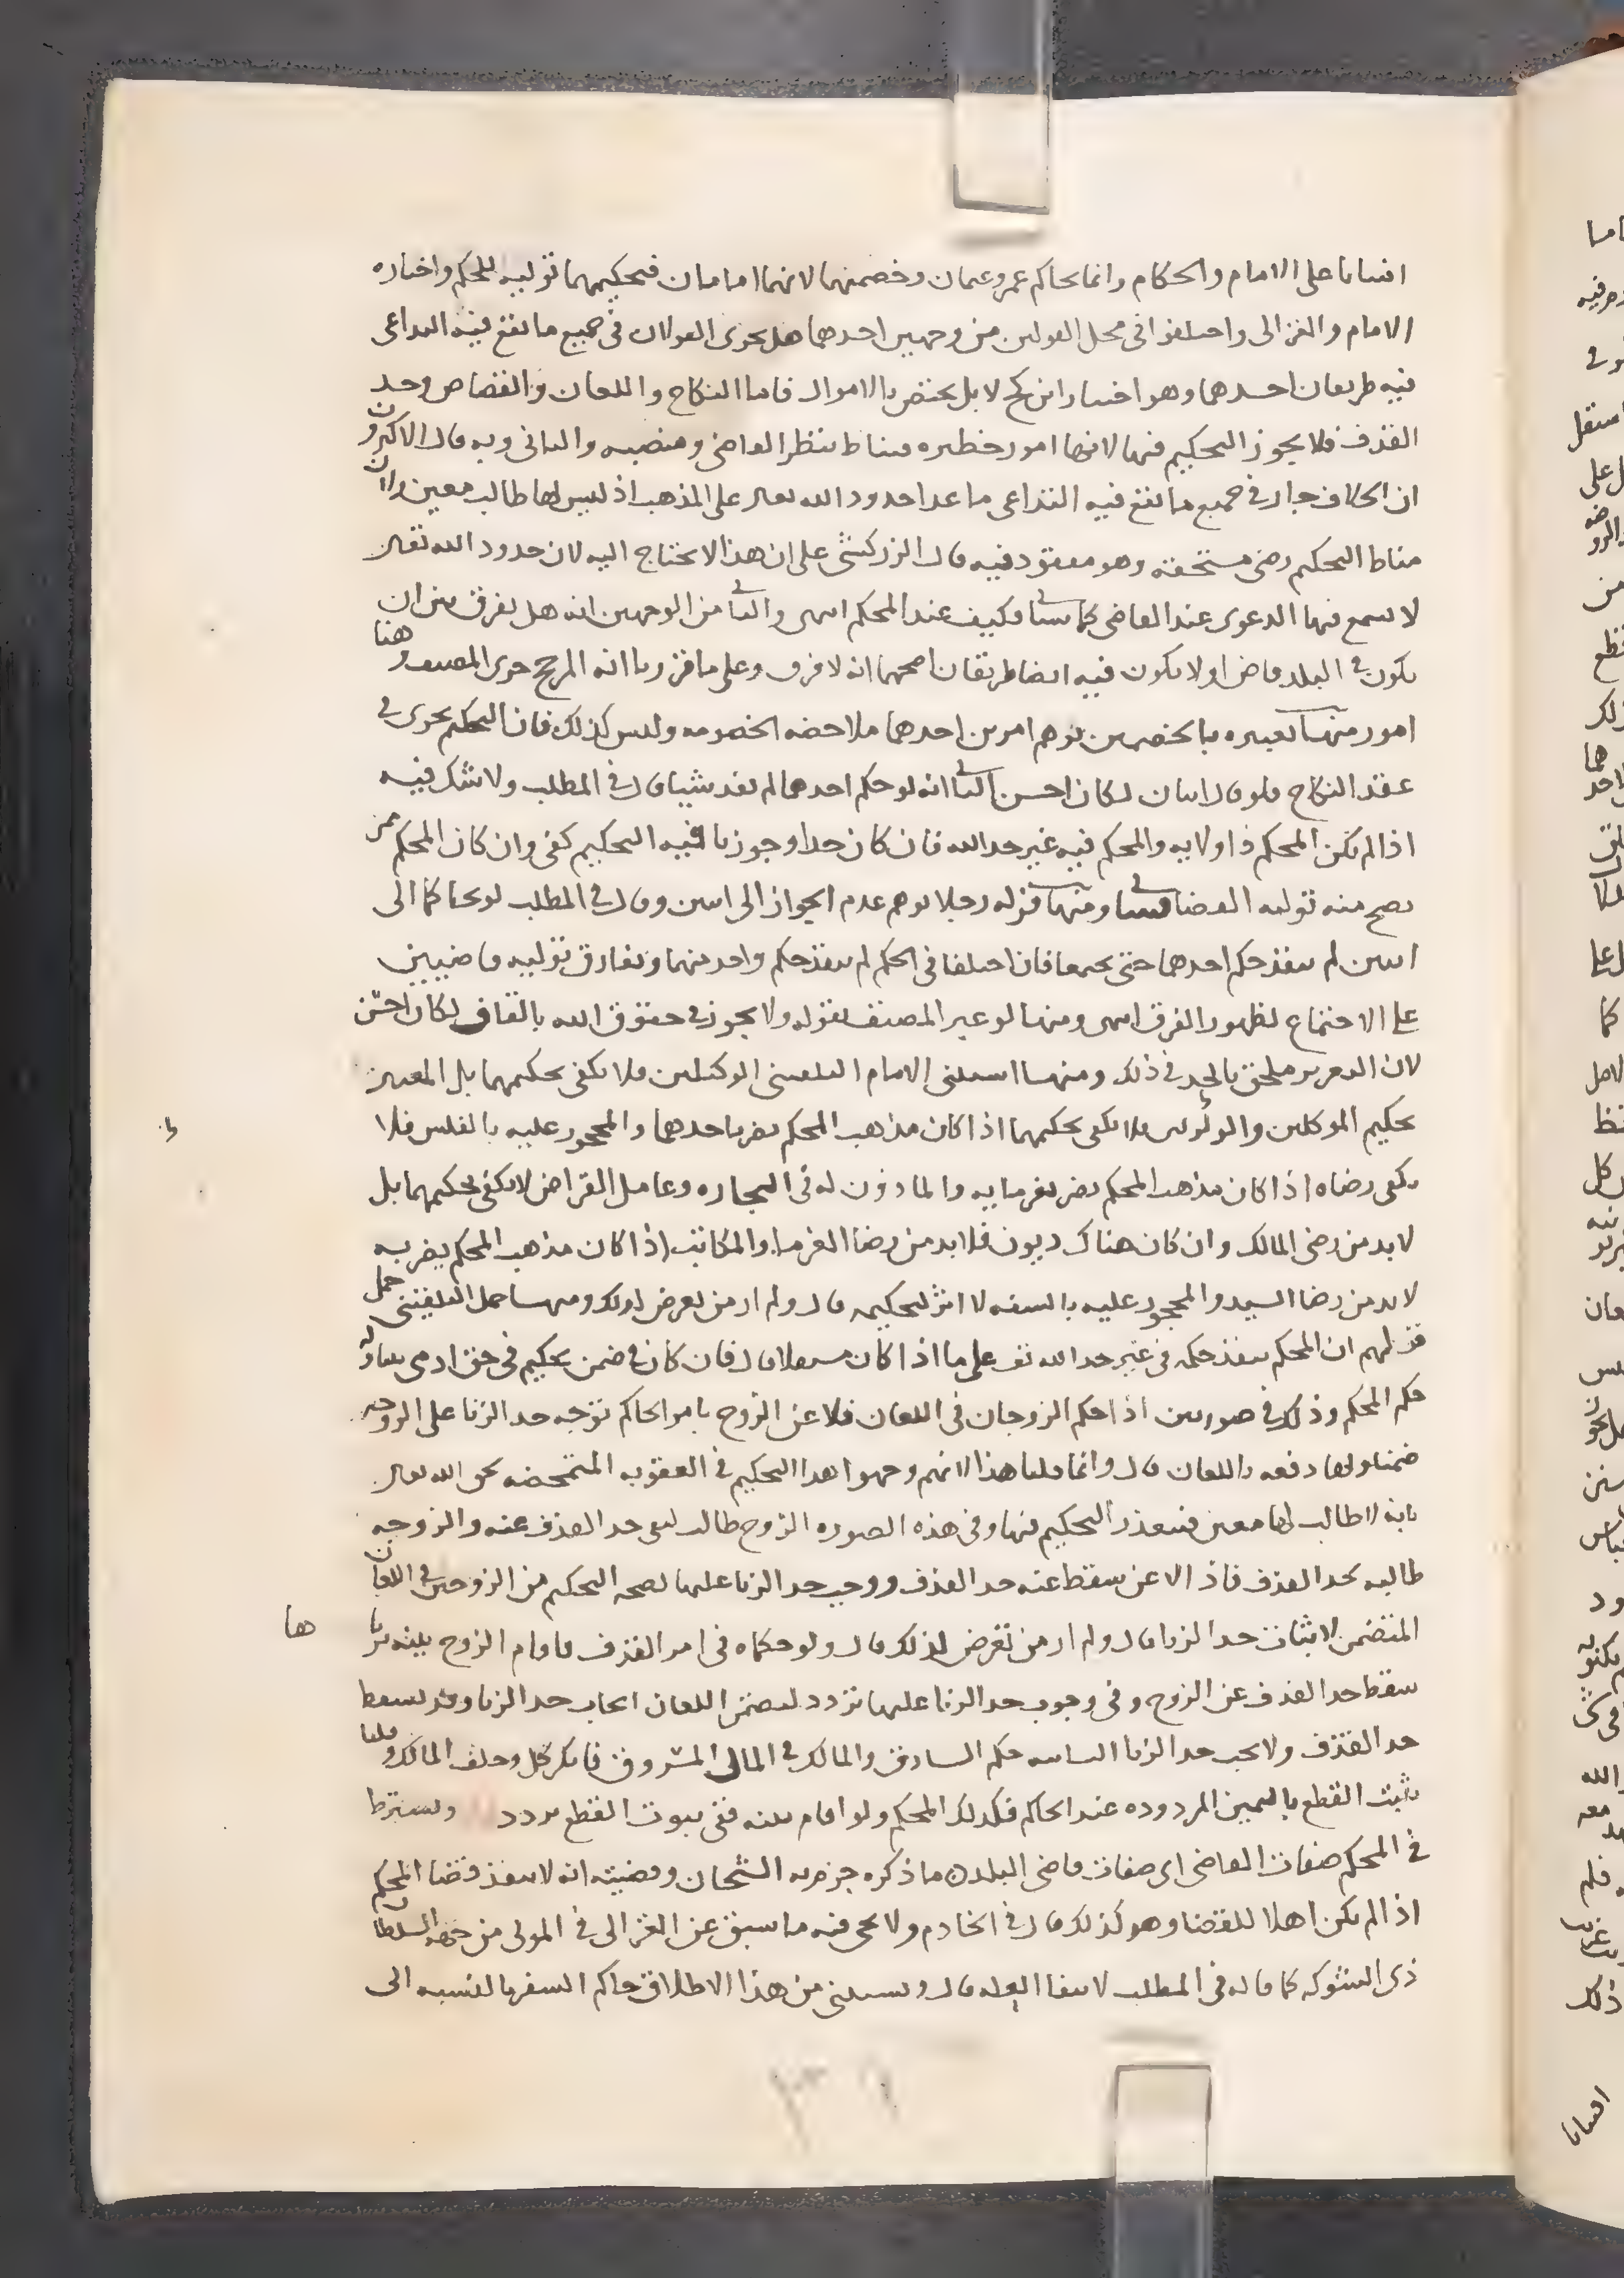 افتياتا على الامام والحكام وانما تحاكم عمر وعثمان وخصمهما لانهما امامان فتحكيمهما توليه للحكم واختاره
الامام والغزالى واختلفوا فى محل القولين من وجهين احدهما هل يجرى القولان فى جميع ما يقع فيه التداعى
فيه طريقان احدهما وهو اختيار ابن كج لا بل يختص بالاموال فاما النكاح واللعان والقصاص وحد
القذف فلا يجوز التحكيم فيها لانها امور خطيره فتناط بنظر القاضى ومنصبه والثانى وبه قال الاكثرون
ان الخلاف جار فى جميع ما يقع فيه التداعى ما عدا حدود الله تعالى على المذهب اذ ليس لها طالب معين ولان
مناط التحكيم رضى مستحقه وهو مفقود فيه قال الزركشى على ان هذا لا يحتاج اليه لان حدود الله تعالى
لا يسمع فيها الدعوى عند القاضى كما سياتى فكيف عند المحكم انتهى والثانى من الوجهين انه هل يفرق بين ان
يكون فى البلد قاض او لا يكون فيه ايضا طريقان اصحهما انه لا فرق وعلى ما قررنا انه المرجح جرى المصنف وهنا
امور منها تعبيره بالخصمين يوهم امرين احدهما ملاحظه الخصومه وليس كذلك فان التحكيم يجرى فى
عقد النكاح فلو قال اثنان لكان احسن الثانى انه لو حكم احدهما لم يفد شيئا قال فى المطلب ولا شك فيه
اذا لم يكن المحكم ذا ولايه والمحكم فيه غير حد الله فان كان حدا وجوزنا فيه التحكيم كفى وان كان المحكم ممن
يصح منه توليه القضا فسياتى ومنها قوله رجلا يوهم عدم الجواز الى اثنين وقال فى المطلب لو تحاكما الى
اثنين لم ينفذ حكم احدهما حتى يجتمعا فان اختلفا فى الحكم لم ينفذ حكم واحد منهما ويفارق توليه قاضيين
على الاجتماع لظهور الفرق انتهى ومنها لو عبر المصنف بقوله ولا يجوز فى حقوق الله بالقاف لكان احسن
لان التعزير ملحق بالحد فى ذلك ومنها استثنى الامام البلقينى الوكيلين فلا يكفى تحكيمهما بل المعتبر
تحكيم الموكلين والوليين فلا يكفى تحكيمهما اذا كان مذهب المحكم يضر باحدهما والمحجور عليه بالفلس فلا
يكفى رضاه اذا كان مذهب المحكم يضر بغرمايه والماذون له فى التجاره وعامل القراض لا يكفى تحكيمهما بل
لا بد من رضى المالك وان كان هناك ديون فلا بد من رضا الغرما والمكاتب اذا كان مذهب المحكم يضر به
لا بد من رضا السيد والمحجور عليه بالسفه لا اثر لتحكيمه قال ولم ار من تعرض لذلك ومنها حمل البلقينى حمل
قولهم ان المحكم ينفذ حكمه فى غير حد الله تعالى على ما اذا كان مستقلا قال فان كان فى ضمن تحكيم فى حق ادمى تناوله
حكم المحكم وذلك فى صورتين اذا حكم الزوجان فى اللعان فلاعن الزوج بامر الحاكم توجه حد الزنا على الزوجه
ضمنا ولها دفعه باللعان قال وانما قلنا هذا لانهم وجهوا هذا التحكيم فى العقوبه المتمحضه بحق الله تعالى
بانه لا طالب لها معين فيتعذر التحكيم فيها وفى هذه الصوره الزوج طالب لنفى حد القذف عنه والزوجه
طالبه بحد القذف فاذا لاعن سقط عنه حد القذف ووجب حد الزنا عليها لصحه التحكيم من الزوجين فى اللعان
المتضمن لاثبات حد الزنا قال ولم ار من تعرض لذلك قال ولو حكماه فى امر القذف فاقام الزوج بينه بزناها
سقط حد القذف عن الزوج وفى وجوب حد الزنا عليها تردد لتضمن اللعان ايجاب حد الزنا وقد يسقط
حد القذف ولا يجب حد الزنا الثانيه حكم السارق والمالك فى المال المسروق فانكر فنكل وحلف المالك وقلنا
يثبت القطع باليمين المردوده عند الحاكم فكذلك المحكم ولو اقام بينه ففى ثبوت القطع تردد ويشترط
فى المحكم صفات القاضى اى صفات قاضى البلد ما ذكره جزم به الشيخان وقضيته انه لا ينفذ قضا المحكم
اذا لم يكن اهلا للقضا وهو كذلك قال فى الخادم ولا يجى فيه ما سبق عن الغزالى فى المولى من جهه السلطان
ذى الشوكه كما قاله فى المطلب لانتفا العله قال ويستثنى من هذا الاطلاق حاكم السفر بالنسبه الى